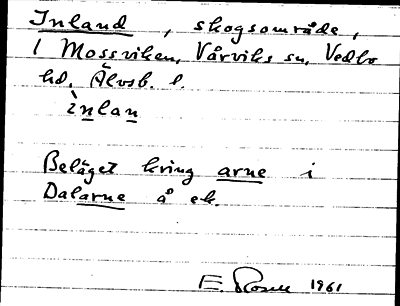 Inland, skogsområde,
i Mossviken, Vårviks sn, Vedbo
hd, Älvsb. l.
ìnlan
Beläget kring arne i
Dalarne å ek.
E. Rosell 1961